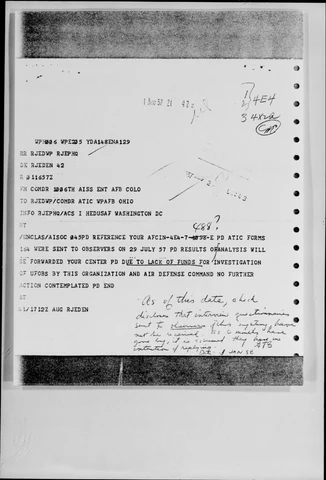 1 AUG 57 21 47z
4E4
3 4X2a
WPH006 WPE205 YDA148ENA129
RR RJEDWP RJEPHQ
DE RJEDEN 42
R 011657Z
FM COMDR 1006TH AISS ENT AFB COLO
TO RJEDWP/COMDR ATIC WPAFB OHIO
INFO RJEPHQ/ACS I HEDUSAF WASHINGTON DC
488?
/UNCLAS/AISOC 045PD REFERENCE YOUR AFCIN-4E4-7- E PD ATIC FORMS
164 WERE SENT TO OBSERVERS ON 29 JULY 57 PD RESULTS OR ANALYSIS WILL
BE FORWARDED YOUR CENTER PD DUE TO LACK OF FUNDS FOR INVESTIGATION
OF UFOBS BY THIS ORGANIZATION AND AIR DEFENSE COMMAND NO FURTHER
ACTION CONTEMPLATED PD END
01/1712Z AUG RJEDEN
As of this date, check
discloses that interview questionnaires
sent to observers of this sighting have
not been received. As 6 months have
gone by, it is assumed they have no
intention of replying. GTS
JAN 58